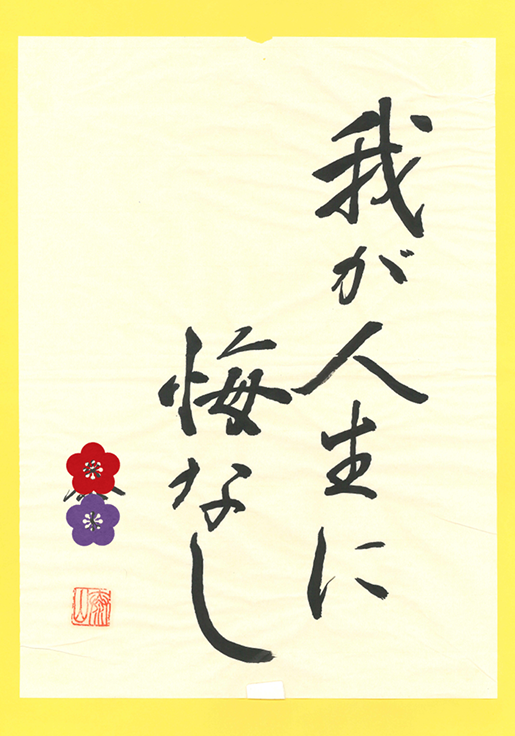 我が人生に
悔なし